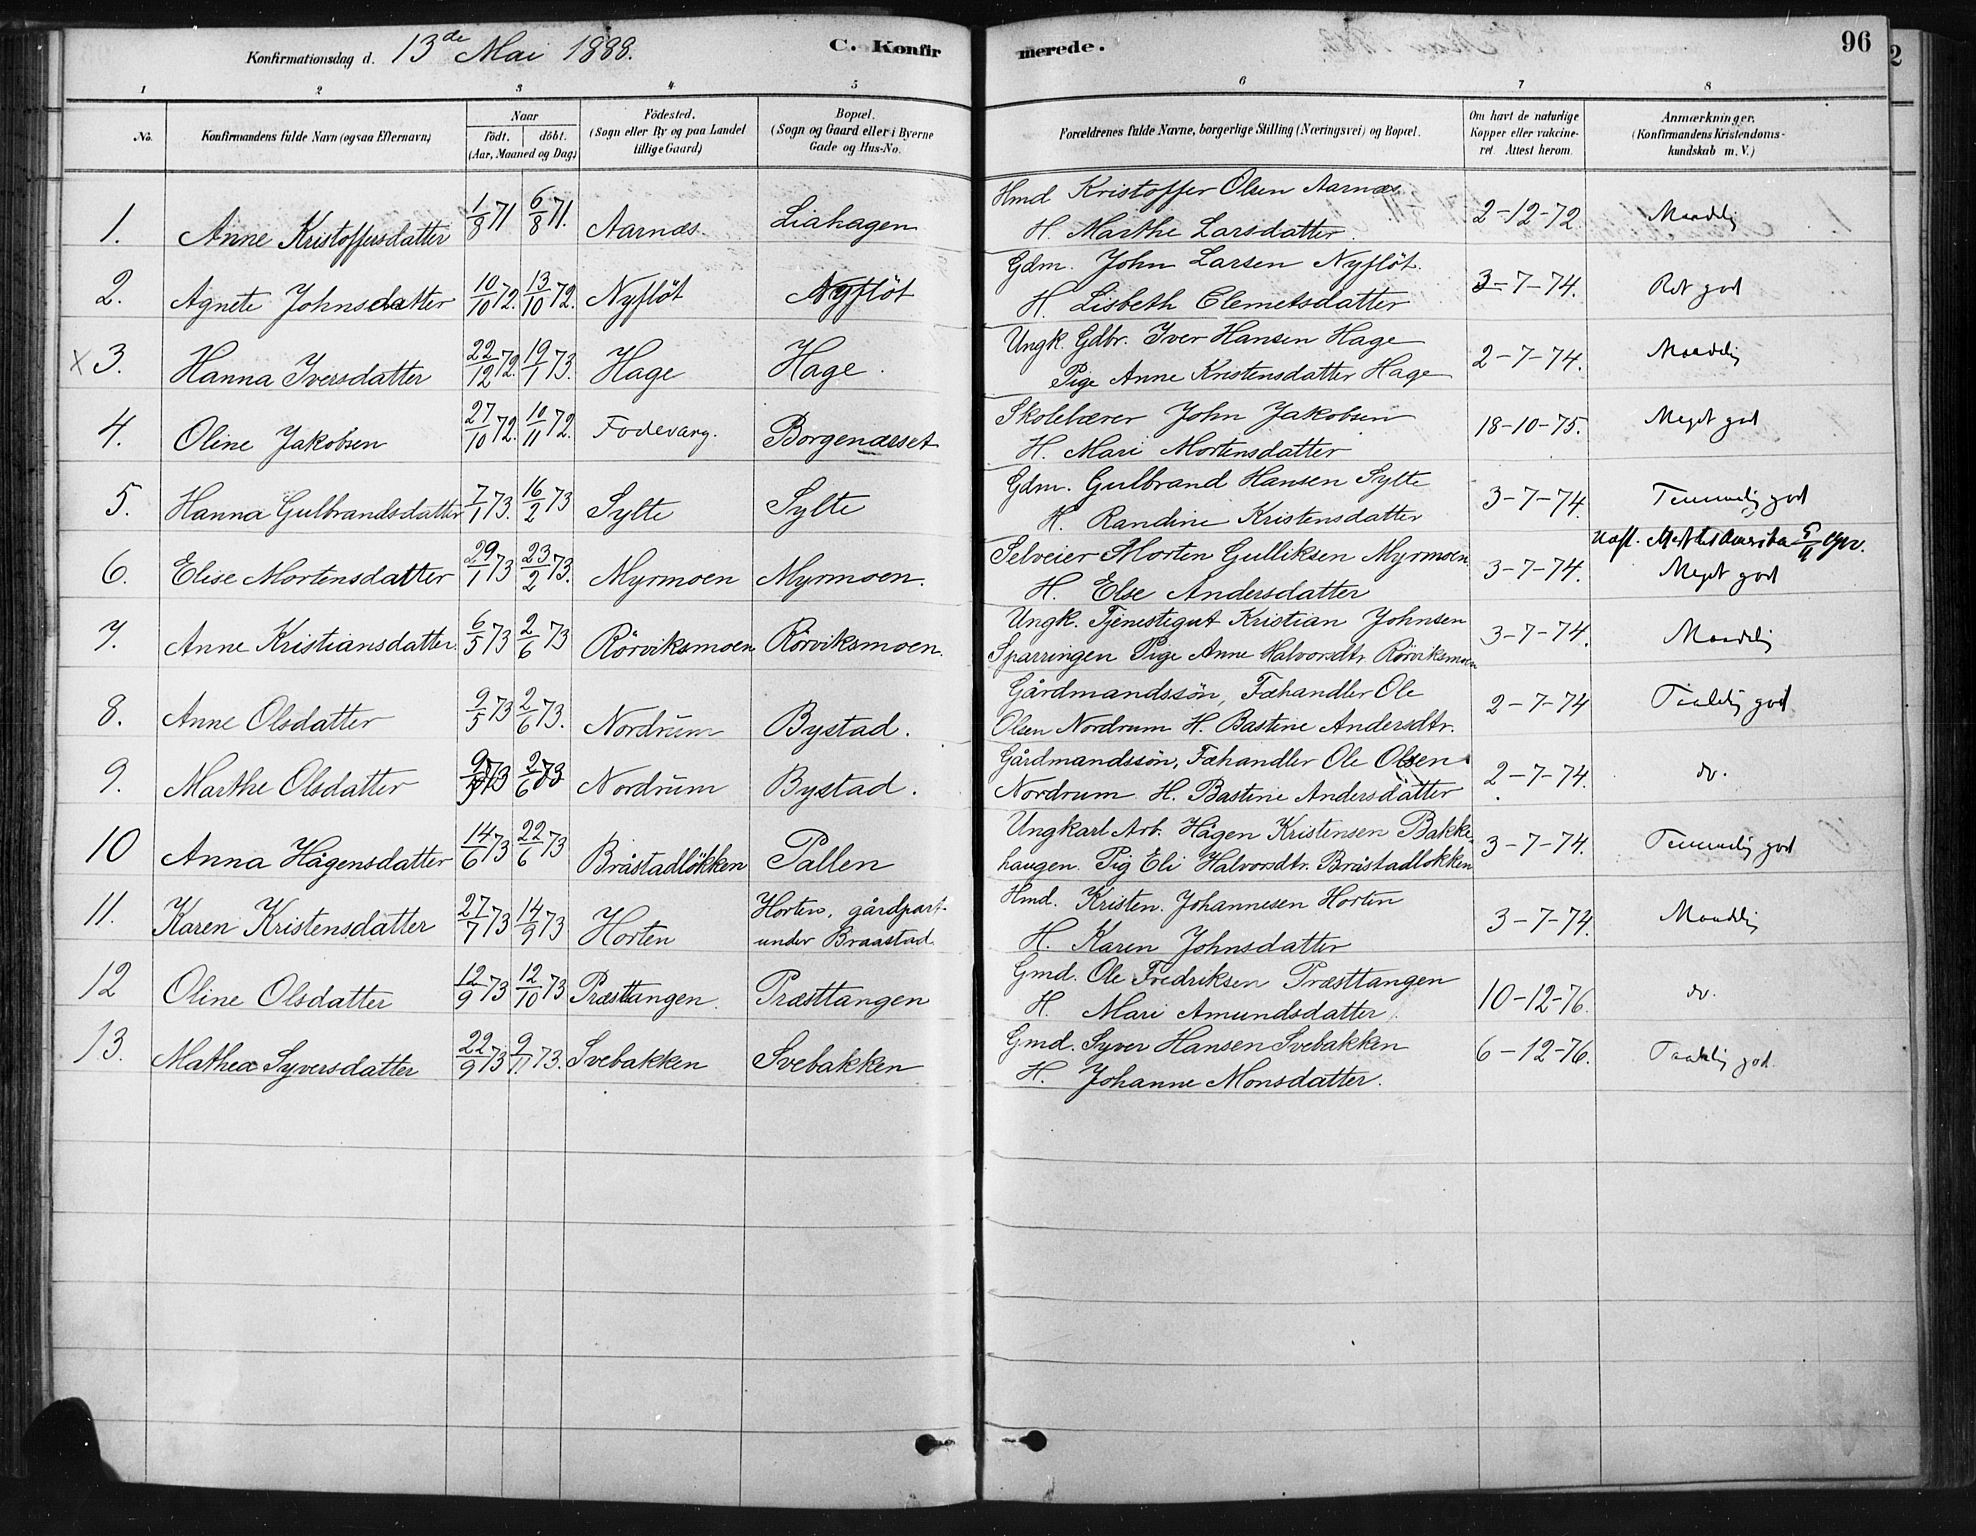 Konfirmationsdag d. 13de Mai 1888. C. Konfirmerede. 96
1 2 3 4 5 6 7 8
No. Konfirmandens fulde Navn (ogsaa Efternavn) Naar født. døbt. (Aar, Maaned og Dag) Fødested. (Sogn eller By og paa Landet tillige Gaard) Bopæl. (Sogn og Gaard eller i Byerne Gade og Hus-No. Forældrenes fulde Navne, borgerlige Stilling (Næringsvei) og Bopæl. Om havt de naturlige Kopper eller vakcineret. Attest herom. Anmærkninger. (Konfirmandens Kristendomskundskab m. V.)
1. Anne Kristoffersdatter 1/8 71 6/8 71. Aarnæs. Liahagen Hmd Kristoffer Olsen Aarnæs. 2-12-72 Maadelig
H. Marthe Larsdatter.
2. Agnete Johnsdatter 10/10 72. 13/10 72. Nyfløt Nyfløt Gdm. John Larsen Nyfløt. 3-7-74. Ret god
H. Lisbeth Clemetsdatter
x 3. Hanna Iversdatter 22/12 72. 19/1 73. Hage Hage. Ungk. Gdbr. Iver Hansen Hage 2-7-74. Maadelig
Pige Anne Kristensdatter Hage
4. Oline Jakobsen 27/10 72. 10/11 72. Fodevang. Borgenæsset Skolelærer John Jakobsen 18-10-75. Meget god
H. Mari Mortensdatter
5. Hanna Gulbrandsdatter 7/1 73. 16/2 73 Sylte Sylte Gdm. Gulbrand Hansen Sylte 3-7-74. Temmelig god
H. Randine Kristensdatter
6. Elise Mortensdatter 29/1 73 23/2 73. Myrmoen Myrmoen. Selveier Morten Gulliksen Myrmoen 3-7-74. Amerika
H. Else Andersdatter Meget god
7. Anne Kristiansdatter 6/5 73 2/6 73 Rørviksmoen Rørviksmoen. Ungk. Tjenestegut Kristian Johnsen 3-7-74. Maadelig
Sparringen Pige Anne Halvorsdtr Rørviksmoen
8. Anne Olsdatter 9/5 73 2/6 73. Nordrum Bystad. Gårdmandssøn, Fæhandler Ole 2-7-74 Taalelig god
Olsen Nordrum H. Bastine Andersdtr.
9. Marthe Olsdatter 9/5 73 2/6 73 Nordrum Bystad. Gårdmandssøn, Fæhandler Ole Olsen 2-7-74. do.
Nordrum H. Bastine Andersdatter
10 Anna Hågensdatter 14/6 73 22/6 73 Bråstadløkken Pallen Ungkarl Arb. Hågen Kristensen Bakke 3-7-74. Temmelig god
haugen. Pig Eli Halvorsdtr. Bråstadløkken
11. Karen Kristensdatter 27/7 73 14/9 73 Horten Horten, gårdpart Hmd. Kristen Johannesen Horten 3-7-74. Maadelig
under Braastad. H. Karen Johnsdatter
12 Oline Olsdatter 12/9 73 12/10 73 Præsttangen. Præsttangen Gmd. Ole Fredriksen Præsttangen 10-12-76. do.
H. Mari Amundsdatter
13. Mathea Syversdatter 22/9 73 9/11 73. Svebakken Svebakken Gmd. Syver Hansen Svebakken 6-12-76. Taalelig god.
H. Johanne Monsdatter.